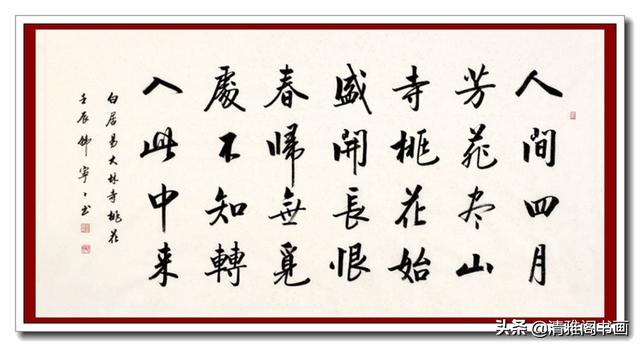 人間四月
芳菲尽山
寺桃花始
盛開長恨
春歸無覓
處不知轉
入此中来
白居易大林寺桃花
壬辰韩寧〻书
头条@清雅阁书画